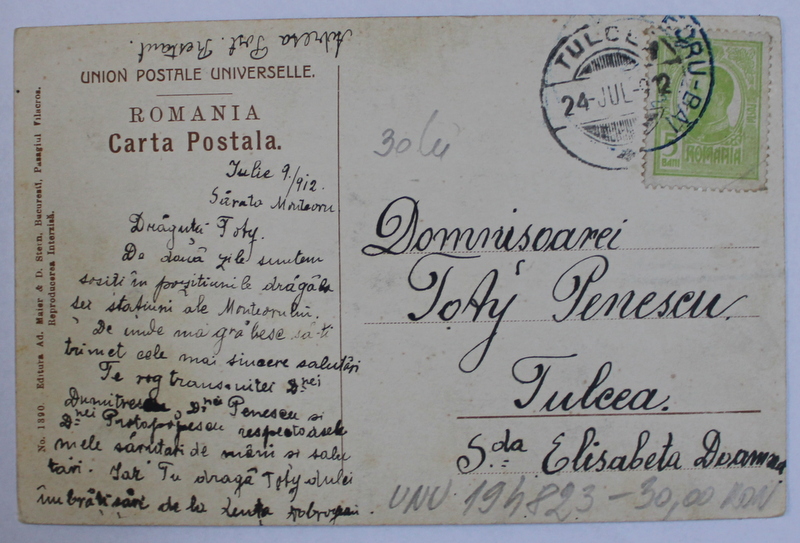 Adresa Post. Restant.
UNION POSTALE UNIVERSELLE.
ROMANIA
Carta Postala.
Iulie 9/912.
Sărata Monteoru
Drăguță Toty.
De două zile suntem
sosiți în pozițiunile drăgăla
șei stațiuni ale Monteorului.
De unde mă grăbesc să-ți
trimet cele mai sincere salutări
Te rog transmitei Dnei
Dumitrescu, Dnei Penescu și
Dnei Protopopescu respectoasele
mele sărutări de mâini și salu
tări. Iar Tu dragă Toty dulci
îmbrățișări de la Lența
No. 1390. Editura Ad. Maier & D. Stern, Bucuresti, Pasagiul Vilacros.
Reproducerea Interzisă.
30 lei
TULCEA
24-JUL-912
5
BANI
ROMANIA
Domnișoarei
Toty Penescu.
Tulcea.
Sda Elisabeta Doamna
UNU 194823-30,00 RON